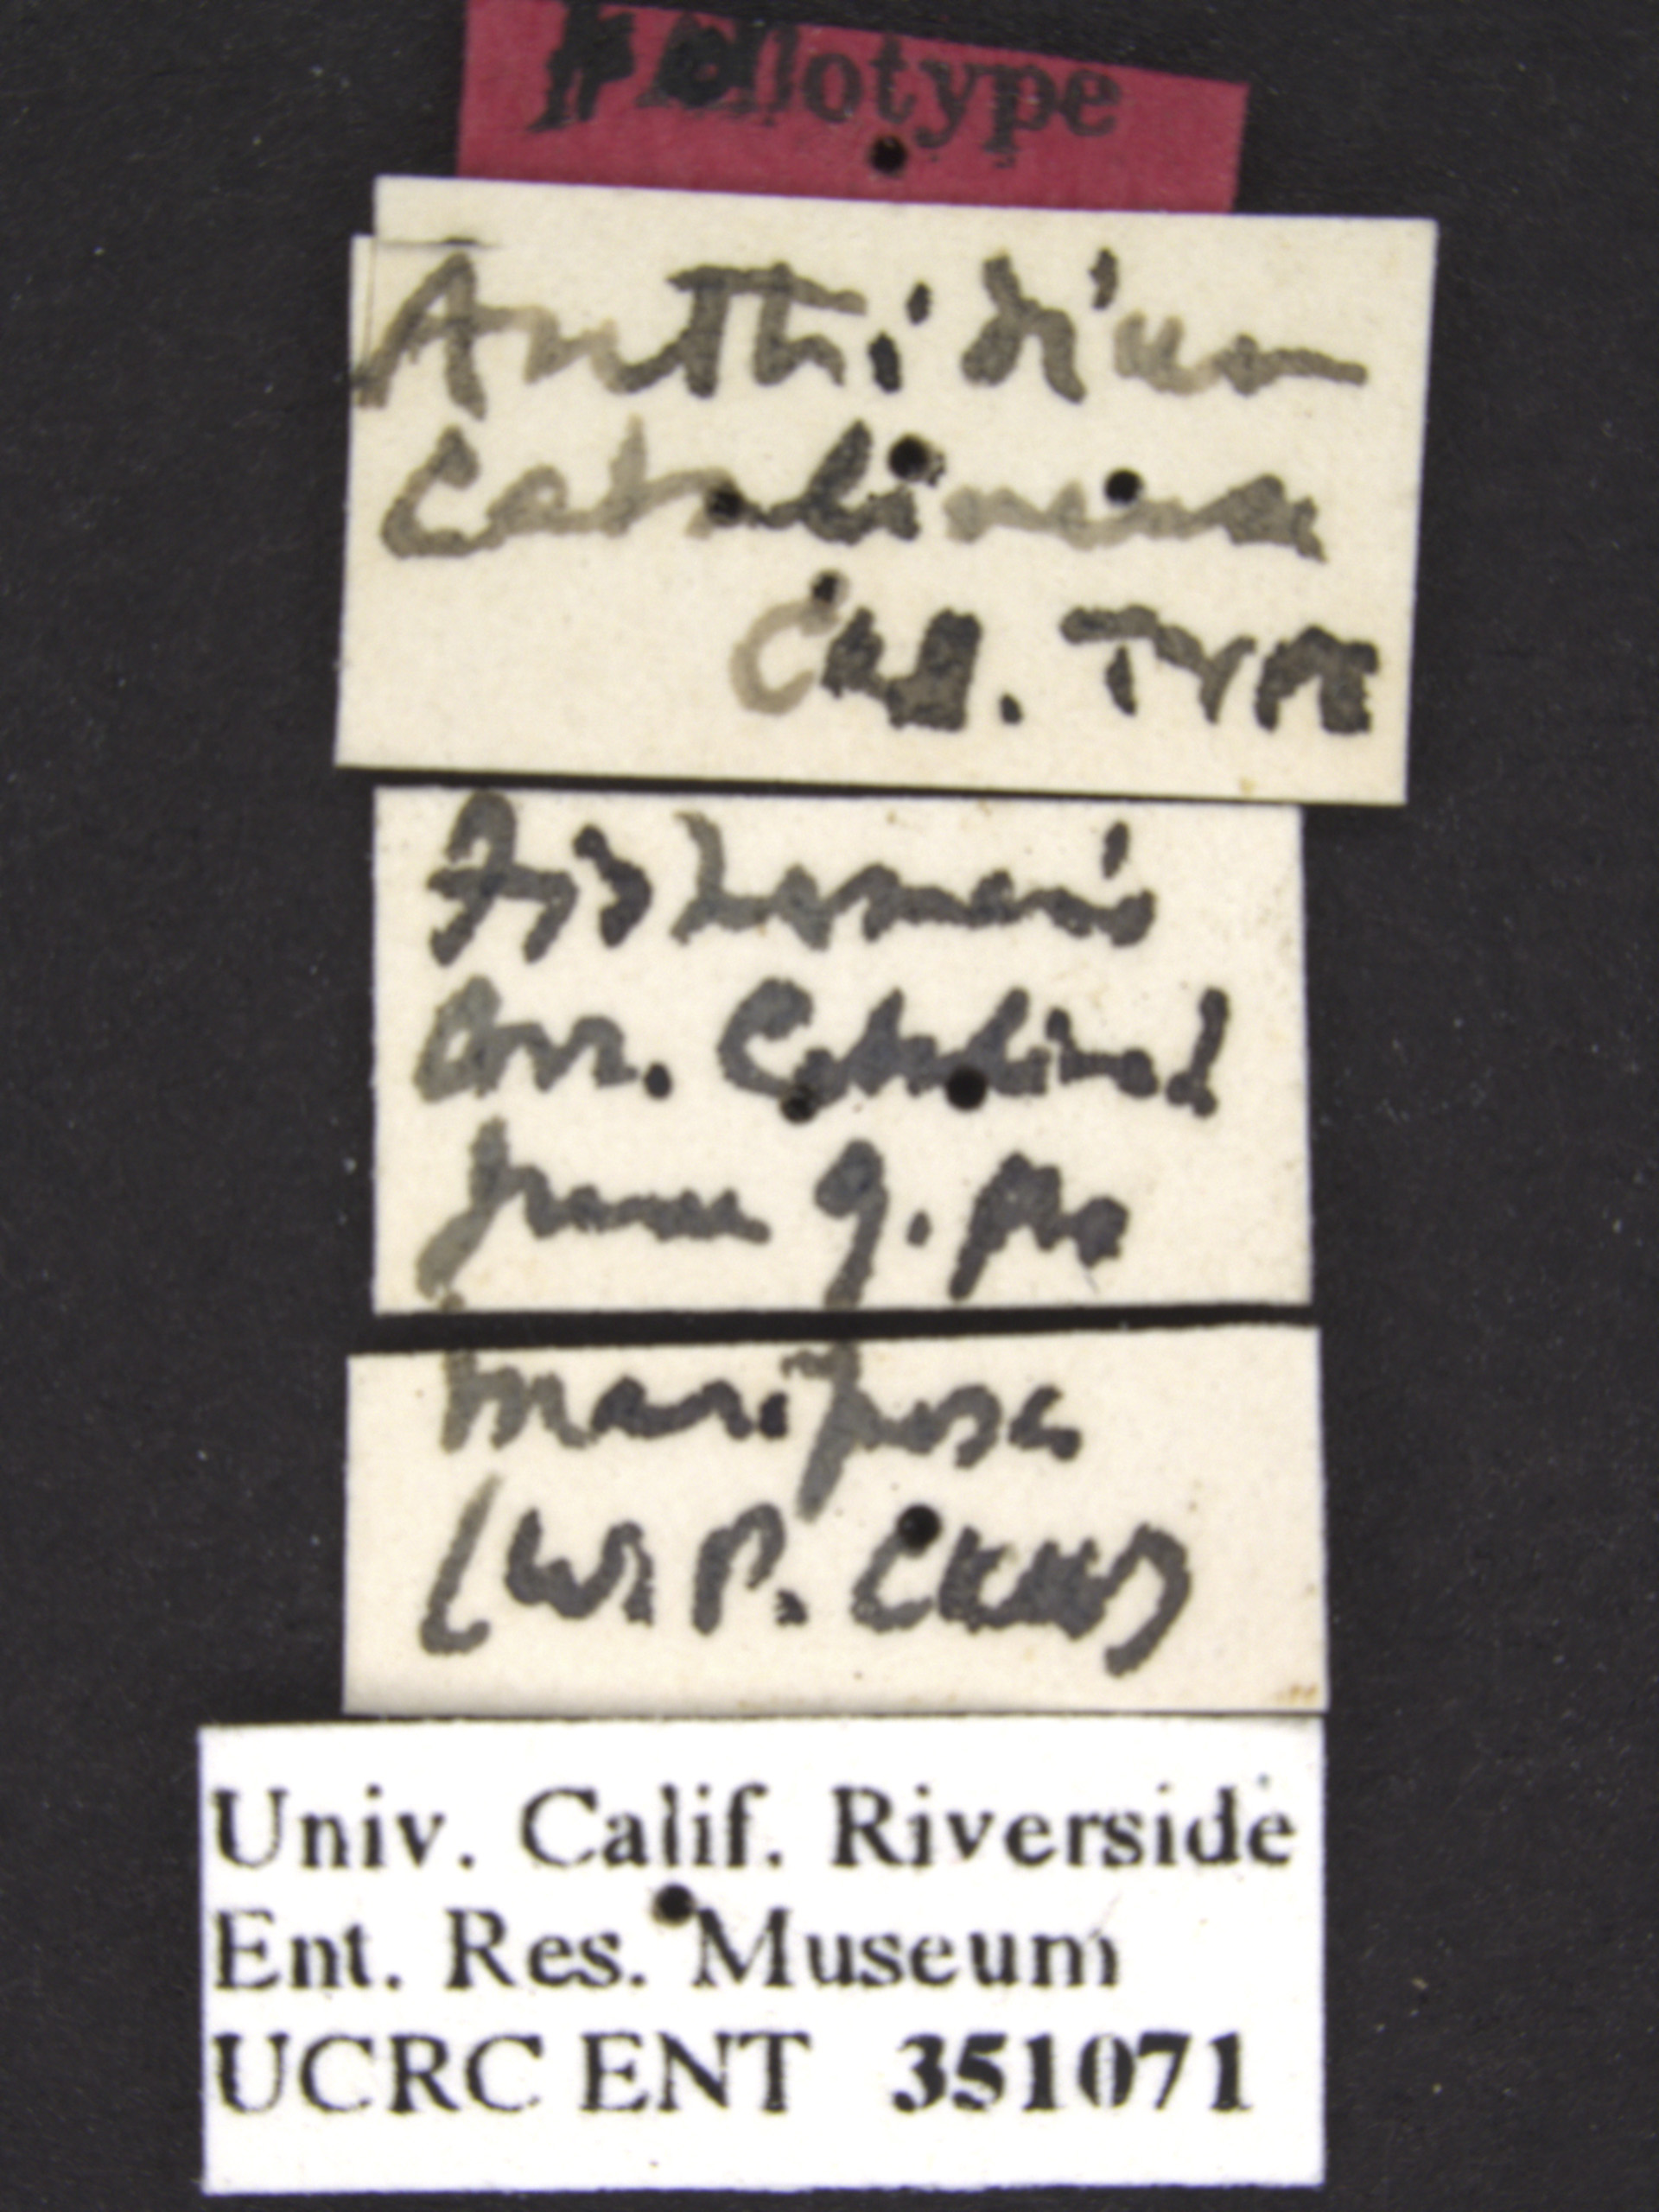 Anthidium
Catalinense
Ckll. TYPE
Fishermen's
Cove. Catalina I
June 9.
mariposa
(W. P. Ckll)
Univ. Calif. Riverside
Ent. Res. Museum
UCRC ENT 351071